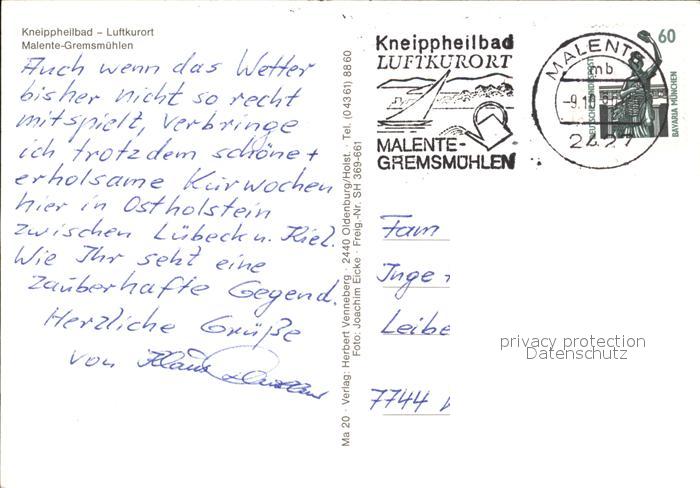 Kneippheilbad – Luftkurort
Malente-Gremsmühlen
Auch wenn das Wetter
bisher nicht so recht
mitspielt, verbringe
ich trotzdem schöne +
erholsame Kurwochen
hier in Ostholstein
zwischen Lübeck u. Kiel.
Wie Ihr seht eine
zauberhafte Gegend.
Herzliche Grüße
von Klaus
Ma 20 · Verlag: Herbert Venneberg · 2440 Oldenburg/Holst. · Tel. (04361) 8860
Foto: Joachim Eicke · Freig.-Nr. SH 369-661
Kneippheilbad
LUFTKURORT
MALENTE-
GREMSMÜHLEN
MALENTE
mb
-9.10.
2427
60
DEUTSCHE BUNDESPOST
BAVARIA MÜNCHEN
Fam
Inge
Leibe
7744
privacy protection
Datenschutz